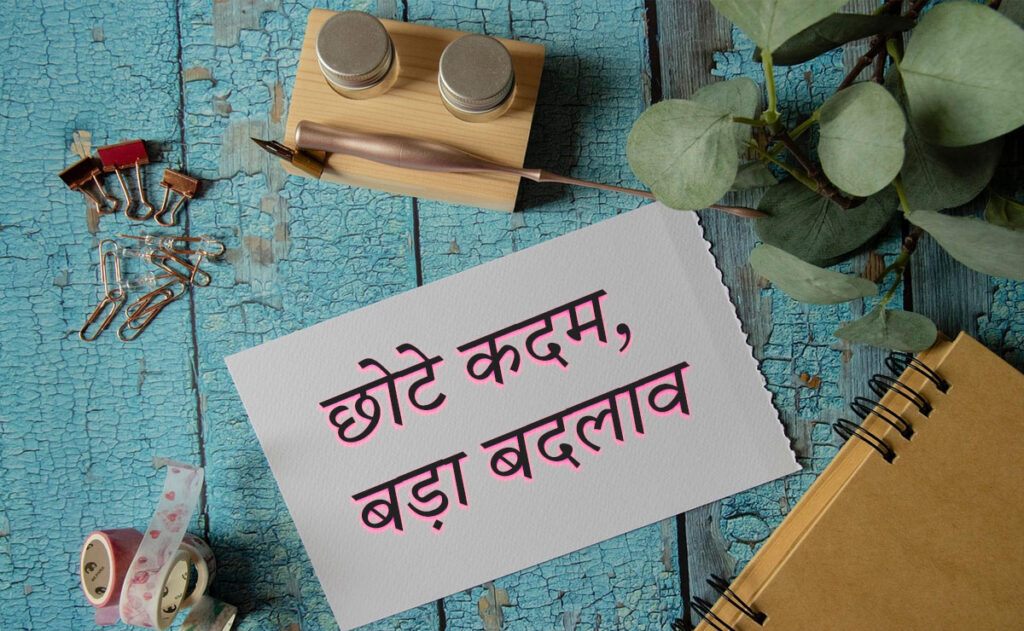 छोटे कदम,
बड़ा बदलाव